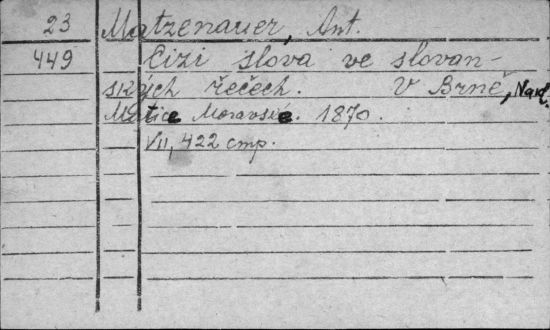 23 Matzenauer, Ant.
449 Cizí slova ve slovan-
ských řečech. V Brně, Nakl.
Matice Moravské. 1870.
VII, 422 стр.